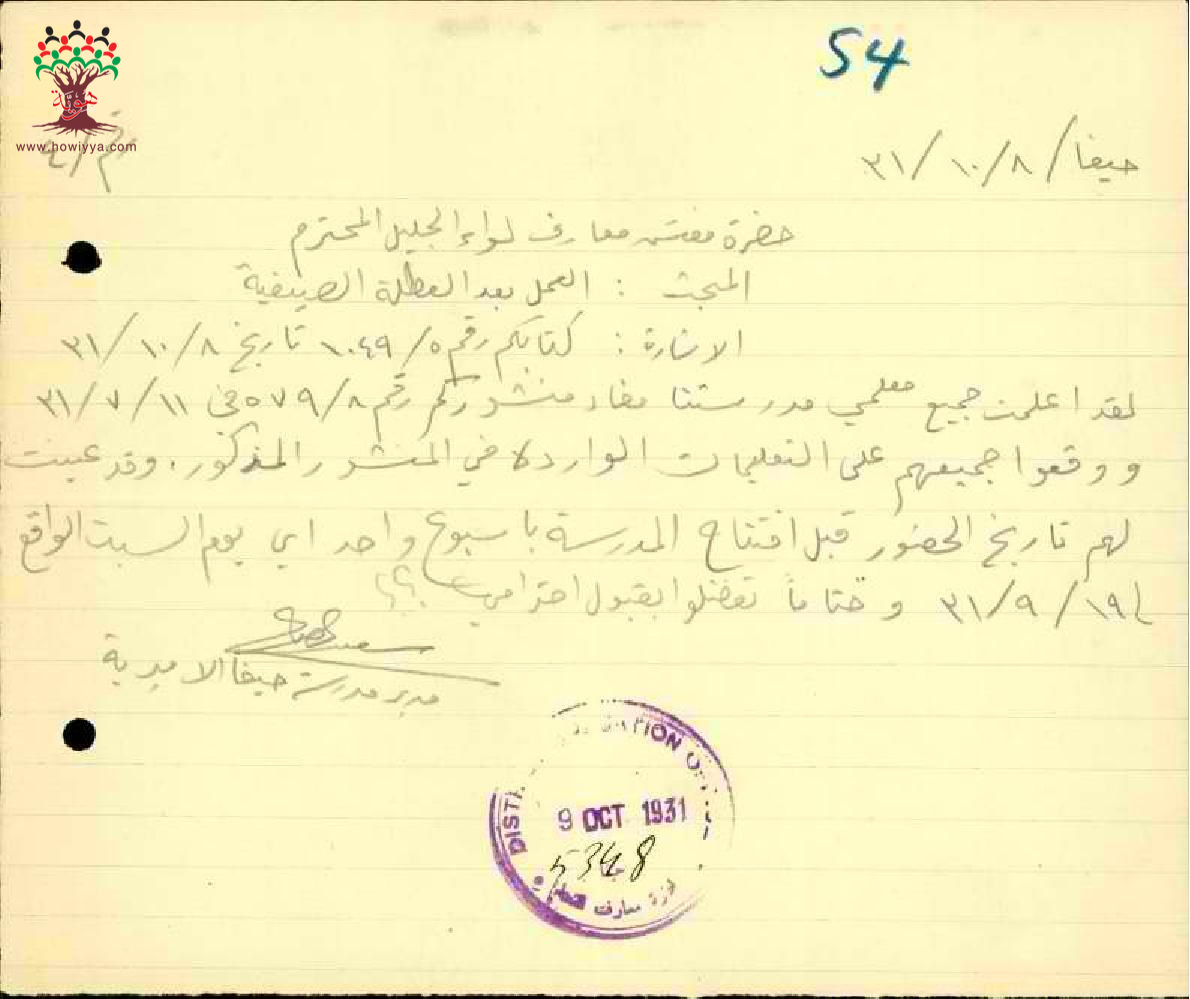 54
هويّة
www.howiyya.com
حيفا / ٨ / ١٠ / ٣١
حضرة مفتش معارف لواء الجليل المحترم
المبحث : العمل بعد العطلة الصيفية
الاشارة : كتابكم رقم ٥ / ١٠٤٩ تاريخ ٨ / ١٠ / ٣١
لقد اعلمت جميع معلمي مدرستنا مفاد منشوركم رقم ٨ / ٥٧٩ في ١١ / ٧ / ٣١
ووقعوا جميعهم على التعليمات الواردة في المنشور المذكور . وقد عينت
لهم تاريخ الحضور قبل افتتاح المدرسة باسبوع واحد اي يوم السبت الواقع
في ١٩ / ٩ / ٣١ وختاماً تفضلوا بقبول احترامي
مدير مدرسة حيفا الاميرية
9 OCT 1931
5348
معارف